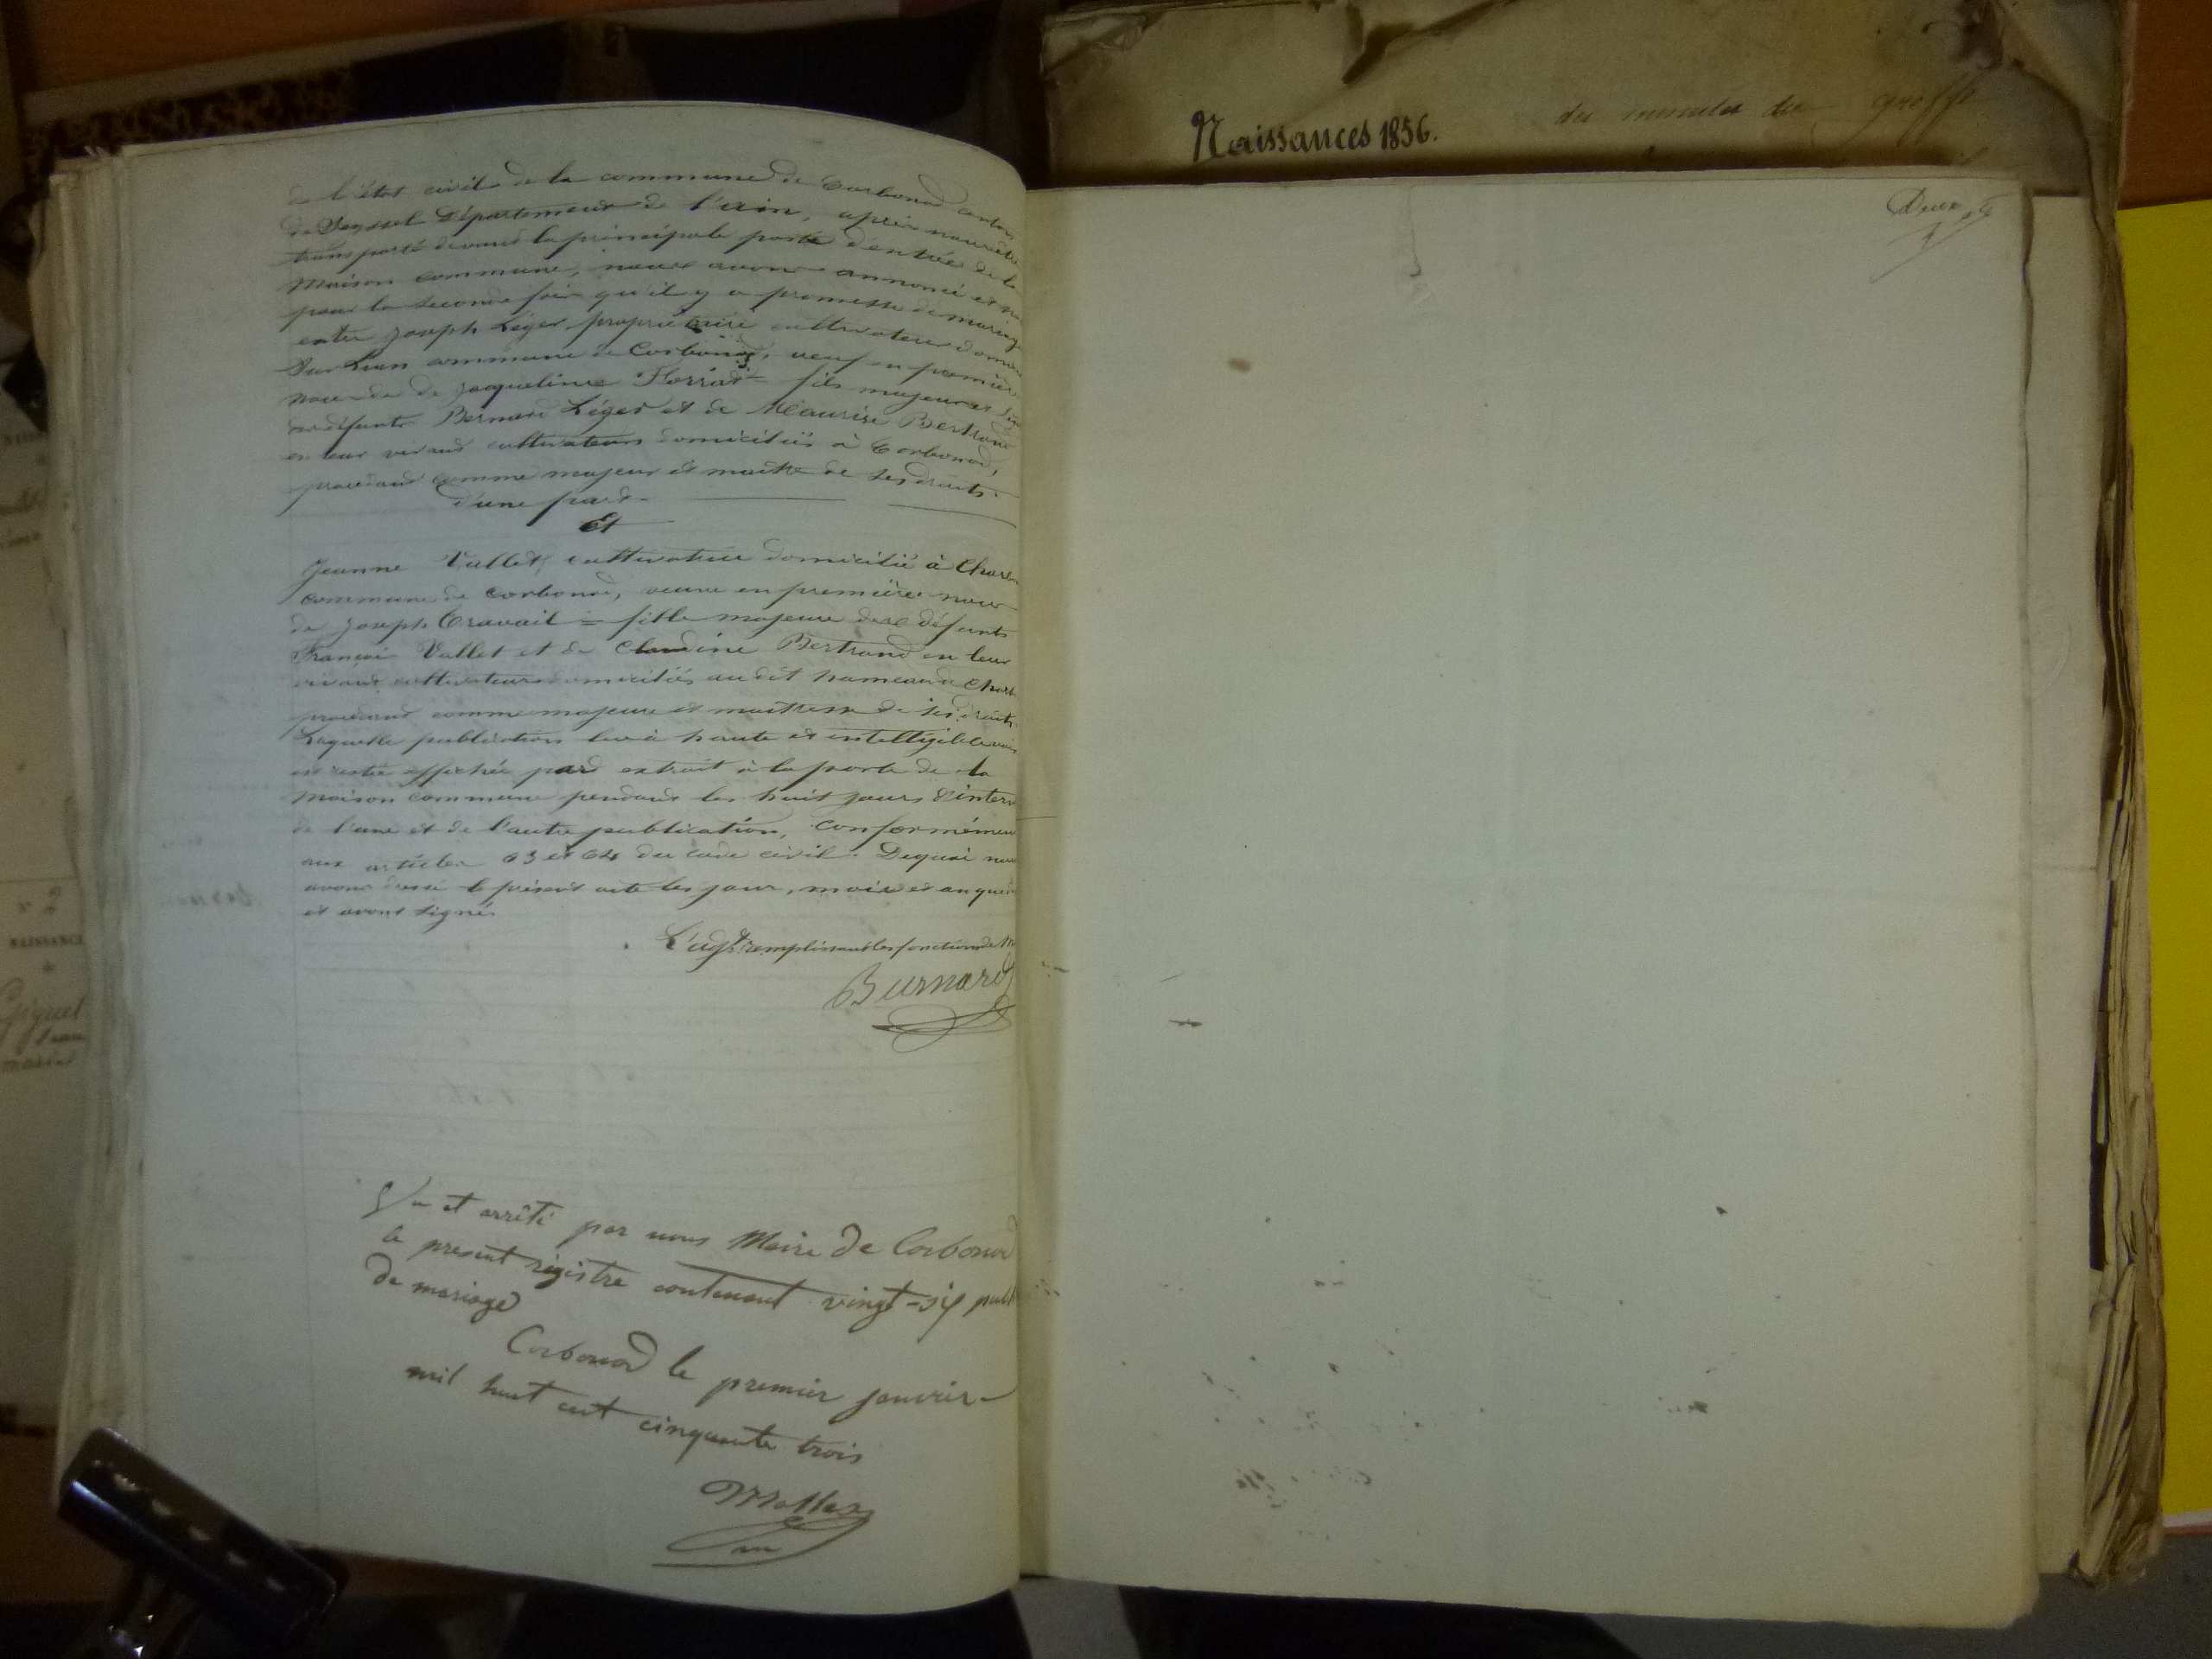 Naissances 1856.
des minutes du greffe
de l'état civil de la commune de Corbonod canton
de Seyssel Département de l'ain, après nous être
transporté devant la principale porte d'entrée de la
Maison commune, nous avons annoncé et
pour la seconde fois qu'il y a promesse de mariage
entre Joseph Léger propriétaire cultivateur
Sur Lian commune de Corbonod, veuf en première
noce de Jaqueline fils majeur et
de défunts Bernard Léger et de Maurise Bertrand
en leur vivant cultivateurs domiciliés à Corbonod,
procédant comme majeur et maitre de ses droits.
d'une part
Et
Jeanne Vallet cultivatrice domicilié à
commune de Corbonod, veuve en première noce
de Joseph Travail = fille majeure des défunts
François Vallet et de Claudine Bertrand en leur
vivant cultivateurs domiciliés audit hameau de
procédant comme majeure et maitresse de ses droits.
Laquelle publication lue à haute et intelligible voix
est restée affichée par extrait à la porte de la
Maison commune pendant les huit jours d'interv
de l'une et de l'autre publication, conformémen
aux articles 63 et 64 du code civil. Dequoi nous
avons dressé le présent acte les jour, mois et an que
et avons signé.
L'adjt remplissant les fonctions de M
Burnard
Vu et arrêté par nous Maire de Corbonod
le present régistre contenant vingt-six publ
de mariage
Corbonod le premier janvier
mil huit cent cinquante trois
Deux
N° 2
NAISSANCE